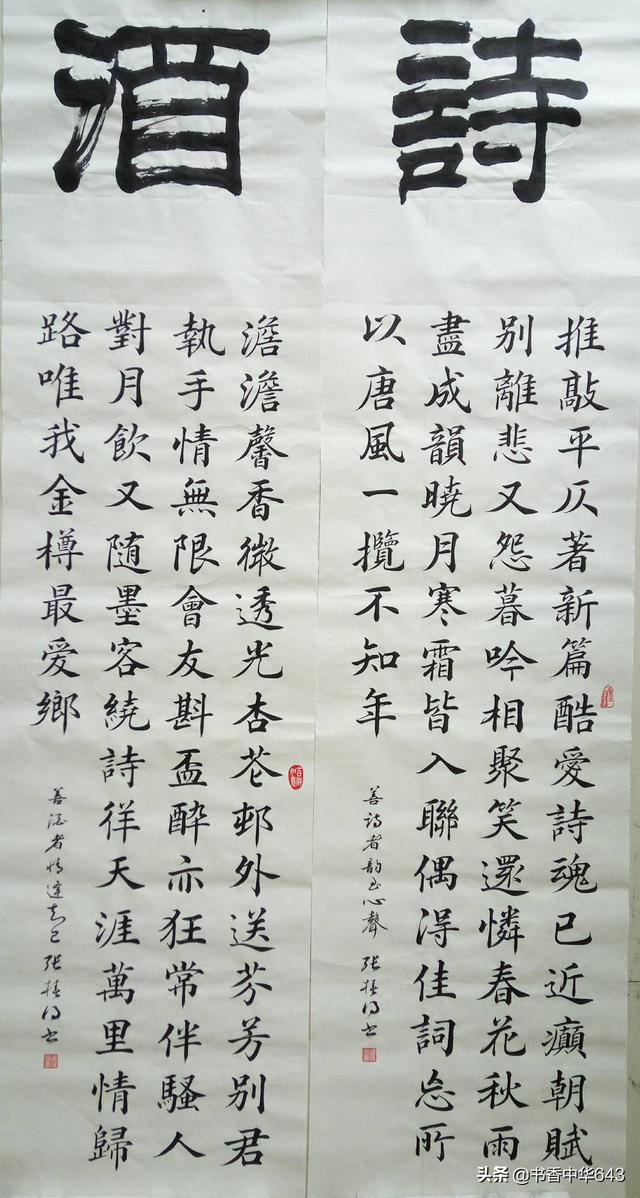 詩
推敲平仄著新篇酷愛詩魂已近癲朝賦
別離悲又怨暮吟相聚笑還憐春花秋雨
盡成韻曉月寒霜皆入聯偶得佳詞忘所
以唐風一攬不知年
善詩者韵出心聲 張
酒
澹澹馨香微透光杏花邨外送芬芳別君
執手情無限會友斟盃醉亦狂常伴騷人
對月飲又随墨客繞詩徉天涯萬里情歸
路唯我金樽最愛鄉
善酒者情達知己 張
头条 @书香中华643